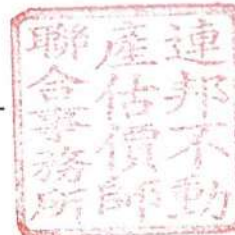 連邦不動
產估價師
聯合事務所